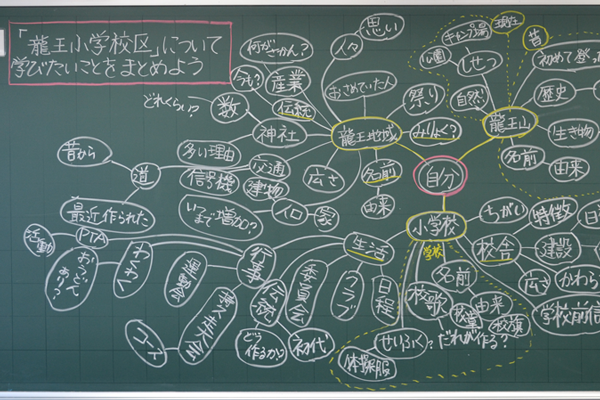 「龍王小学校区」について
学びたいことをまとめよう
自分
龍王地域
思い
人々
何がさかん?
今も?
産業
伝統
おさめていた人
祭り
みりょく?
どれくらい?
数
神社
多い理由
交通
信号機
建物
広さ
名前
由来
いつまで増加?
人口
家
道
昔から
最近作られた
龍王山
キャンプ場
現在
昔
公園
しせつ
自然
初めて登っ
歴史
生き物
名前
由来
小学校
学校
ちがい
特徴
校舎
建設
広さ
かわら
学校前信
名前
校歌
由来
校章
校旗
だれが作る?
せいふく?
体操服
生活
日程
クラブ
委員会
行事
伝統
どう作るか?
初代
運動会
コース
わおく
PTA
活動